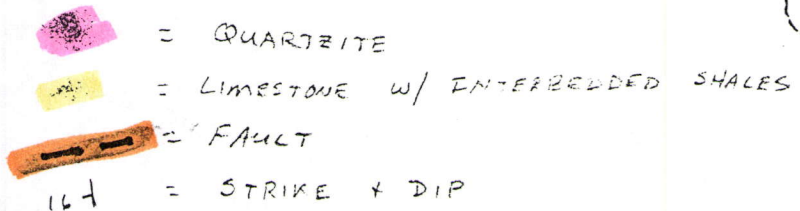 = QUARTZITE
= LIMESTONE W/ INTERBEDDED SHALES
= FAULT
16 = STRIKE + DIP